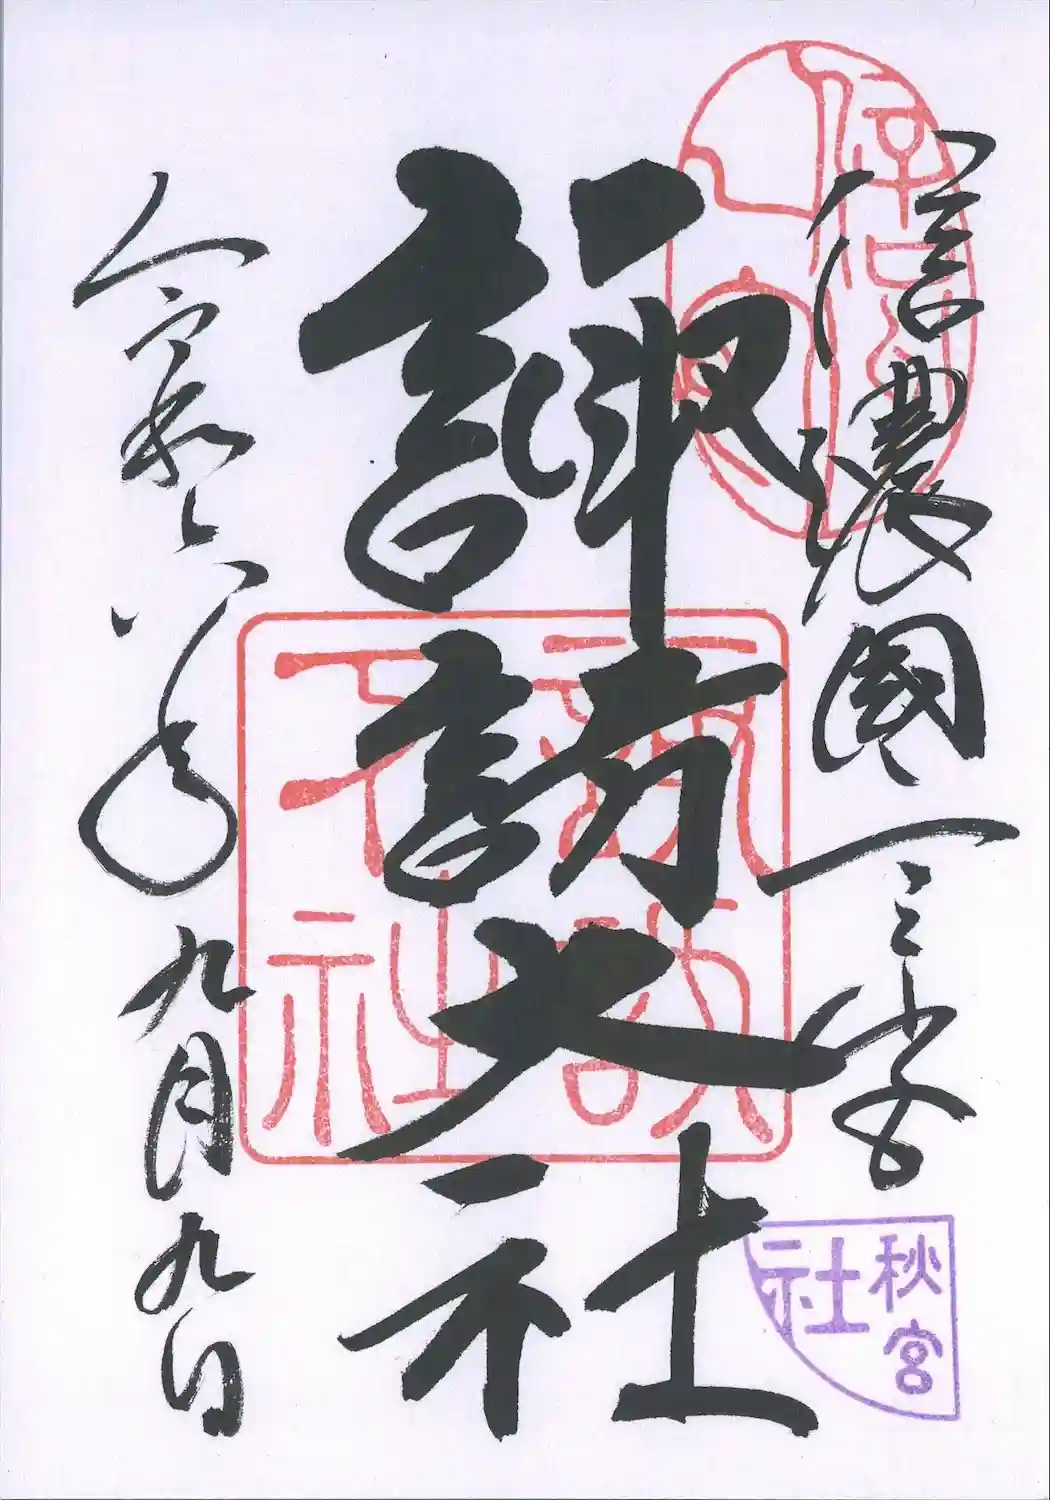 信濃國一之宮
諏訪大社
令和六年九月九日
諏訪大社
秋宮
社